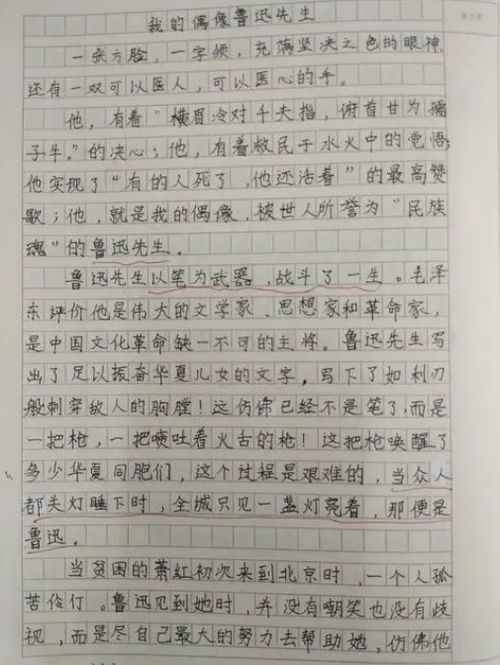 我的偶像鲁迅先生
一张方脸，一字须，充满坚决之色的眼神，
还有一双可以医人，可以医心的手。
他，有着"横眉冷对千夫指，俯首甘为孺
子牛。"的决心；他，有着救民于水火中的觉悟；
他实现了"有的人死了，他还活着"的最高赞
歌；他，就是我的偶像，被世人所誉为"民族
魂"的鲁迅先生。
鲁迅先生以笔为武器，战斗了一生。毛泽
东评价他是伟大的文学家、思想家和革命家，
是中国文化革命缺一不可的主将。鲁迅先生写
出了足以振奋华夏儿女的文字，写下了如利刃
般刺穿敌人的胸膛！这仿佛已经不是笔了，而是
一把枪，一把喷吐着火舌的枪！这把枪唤醒了
多少华夏同胞们，这个过程是艰难的，当众人
都关灯睡下时，全城只见一盏灯亮着，那便是
鲁迅。
当贫困的萧红初次来到北京时，一个人孤
苦伶仃。鲁迅见到她时，并没有嘲笑也没有歧
视，而是尽自己最大的努力去帮助她，仿佛他